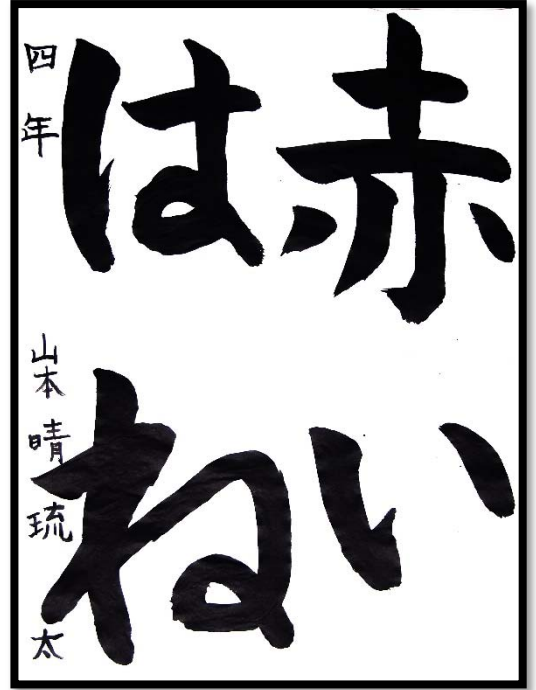 赤い
はね
四年 山本晴琉太